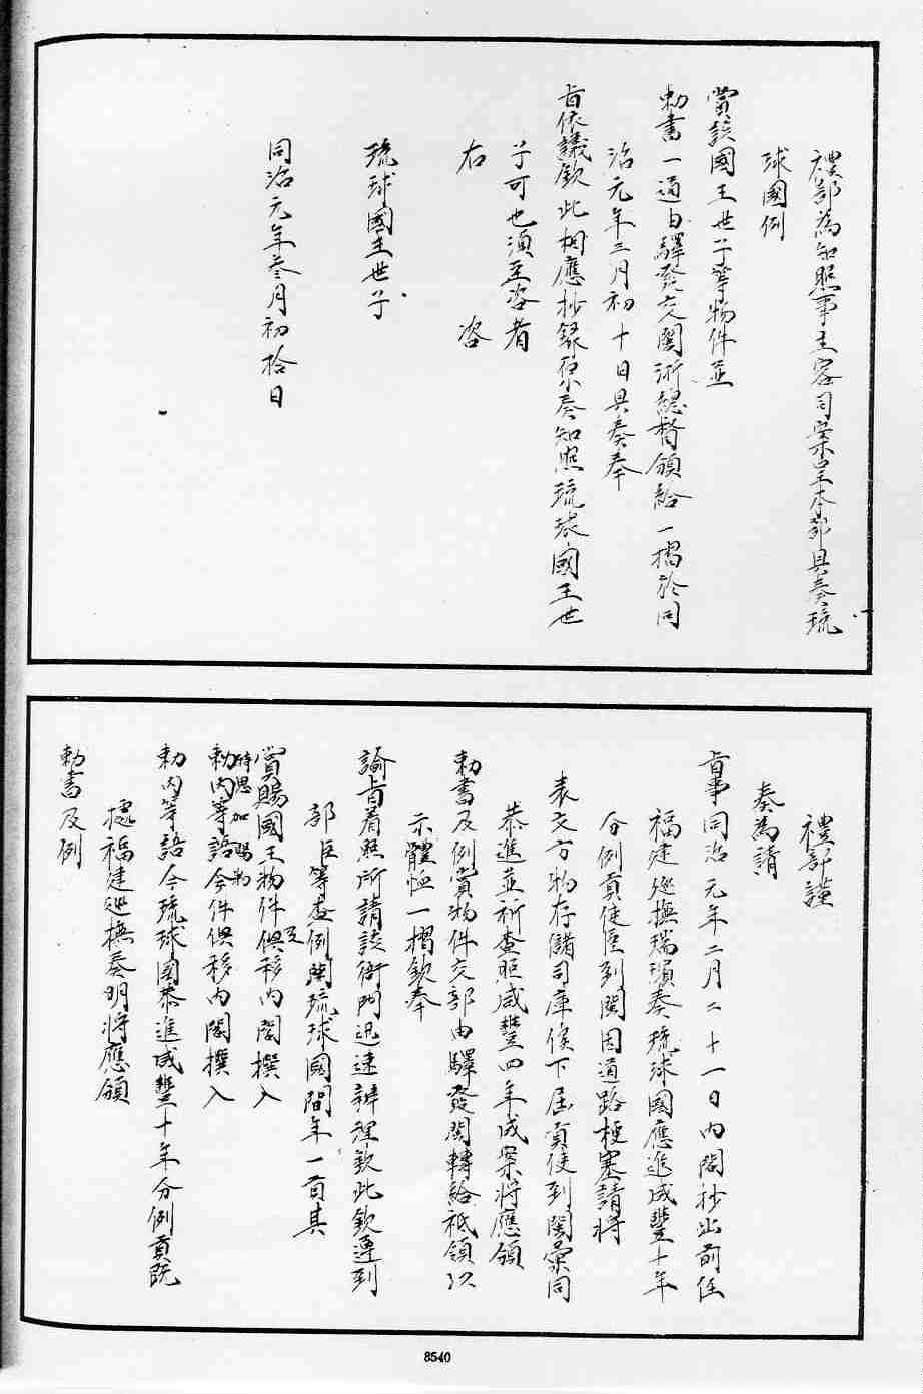 禮部為知照事主客司案呈本部具奏琉
球國例
賞該國王世子等物件並
勅書一通由驛發交閩浙總督頒給一摺於同
治元年三月初十日具奏奉
旨依議欽此相應抄錄原奏知照琉球國王世
子可也須至咨者
右　咨
琉球國王世子
同治元年叁月初拾日
禮部謹
奏為請
旨事同治元年二月二十一日內閣抄出前任
福建巡撫瑞璸奏琉球國應進咸豐十年
分例貢使臣到閩因道路梗塞請將
表文方物存儲司庫俟下屆貢使到閩彙同
恭進並祈查照咸豐四年成案將應頒
勅書及例賞物件交部由驛發閩轉給祗領以
示體恤一摺欽奉
諭旨着照所請該衙門迅速辦理欽此欽遵到
部臣等查例開琉球國間年一貢其
賞賜國王物件俱移內閣撰入
及
特恩加賜物
勅內等語今件俱移內閣撰入
勅內等語今琉球國恭進咸豐十年分例貢既
據福建巡撫奏明將應頒
勅書及例
8540